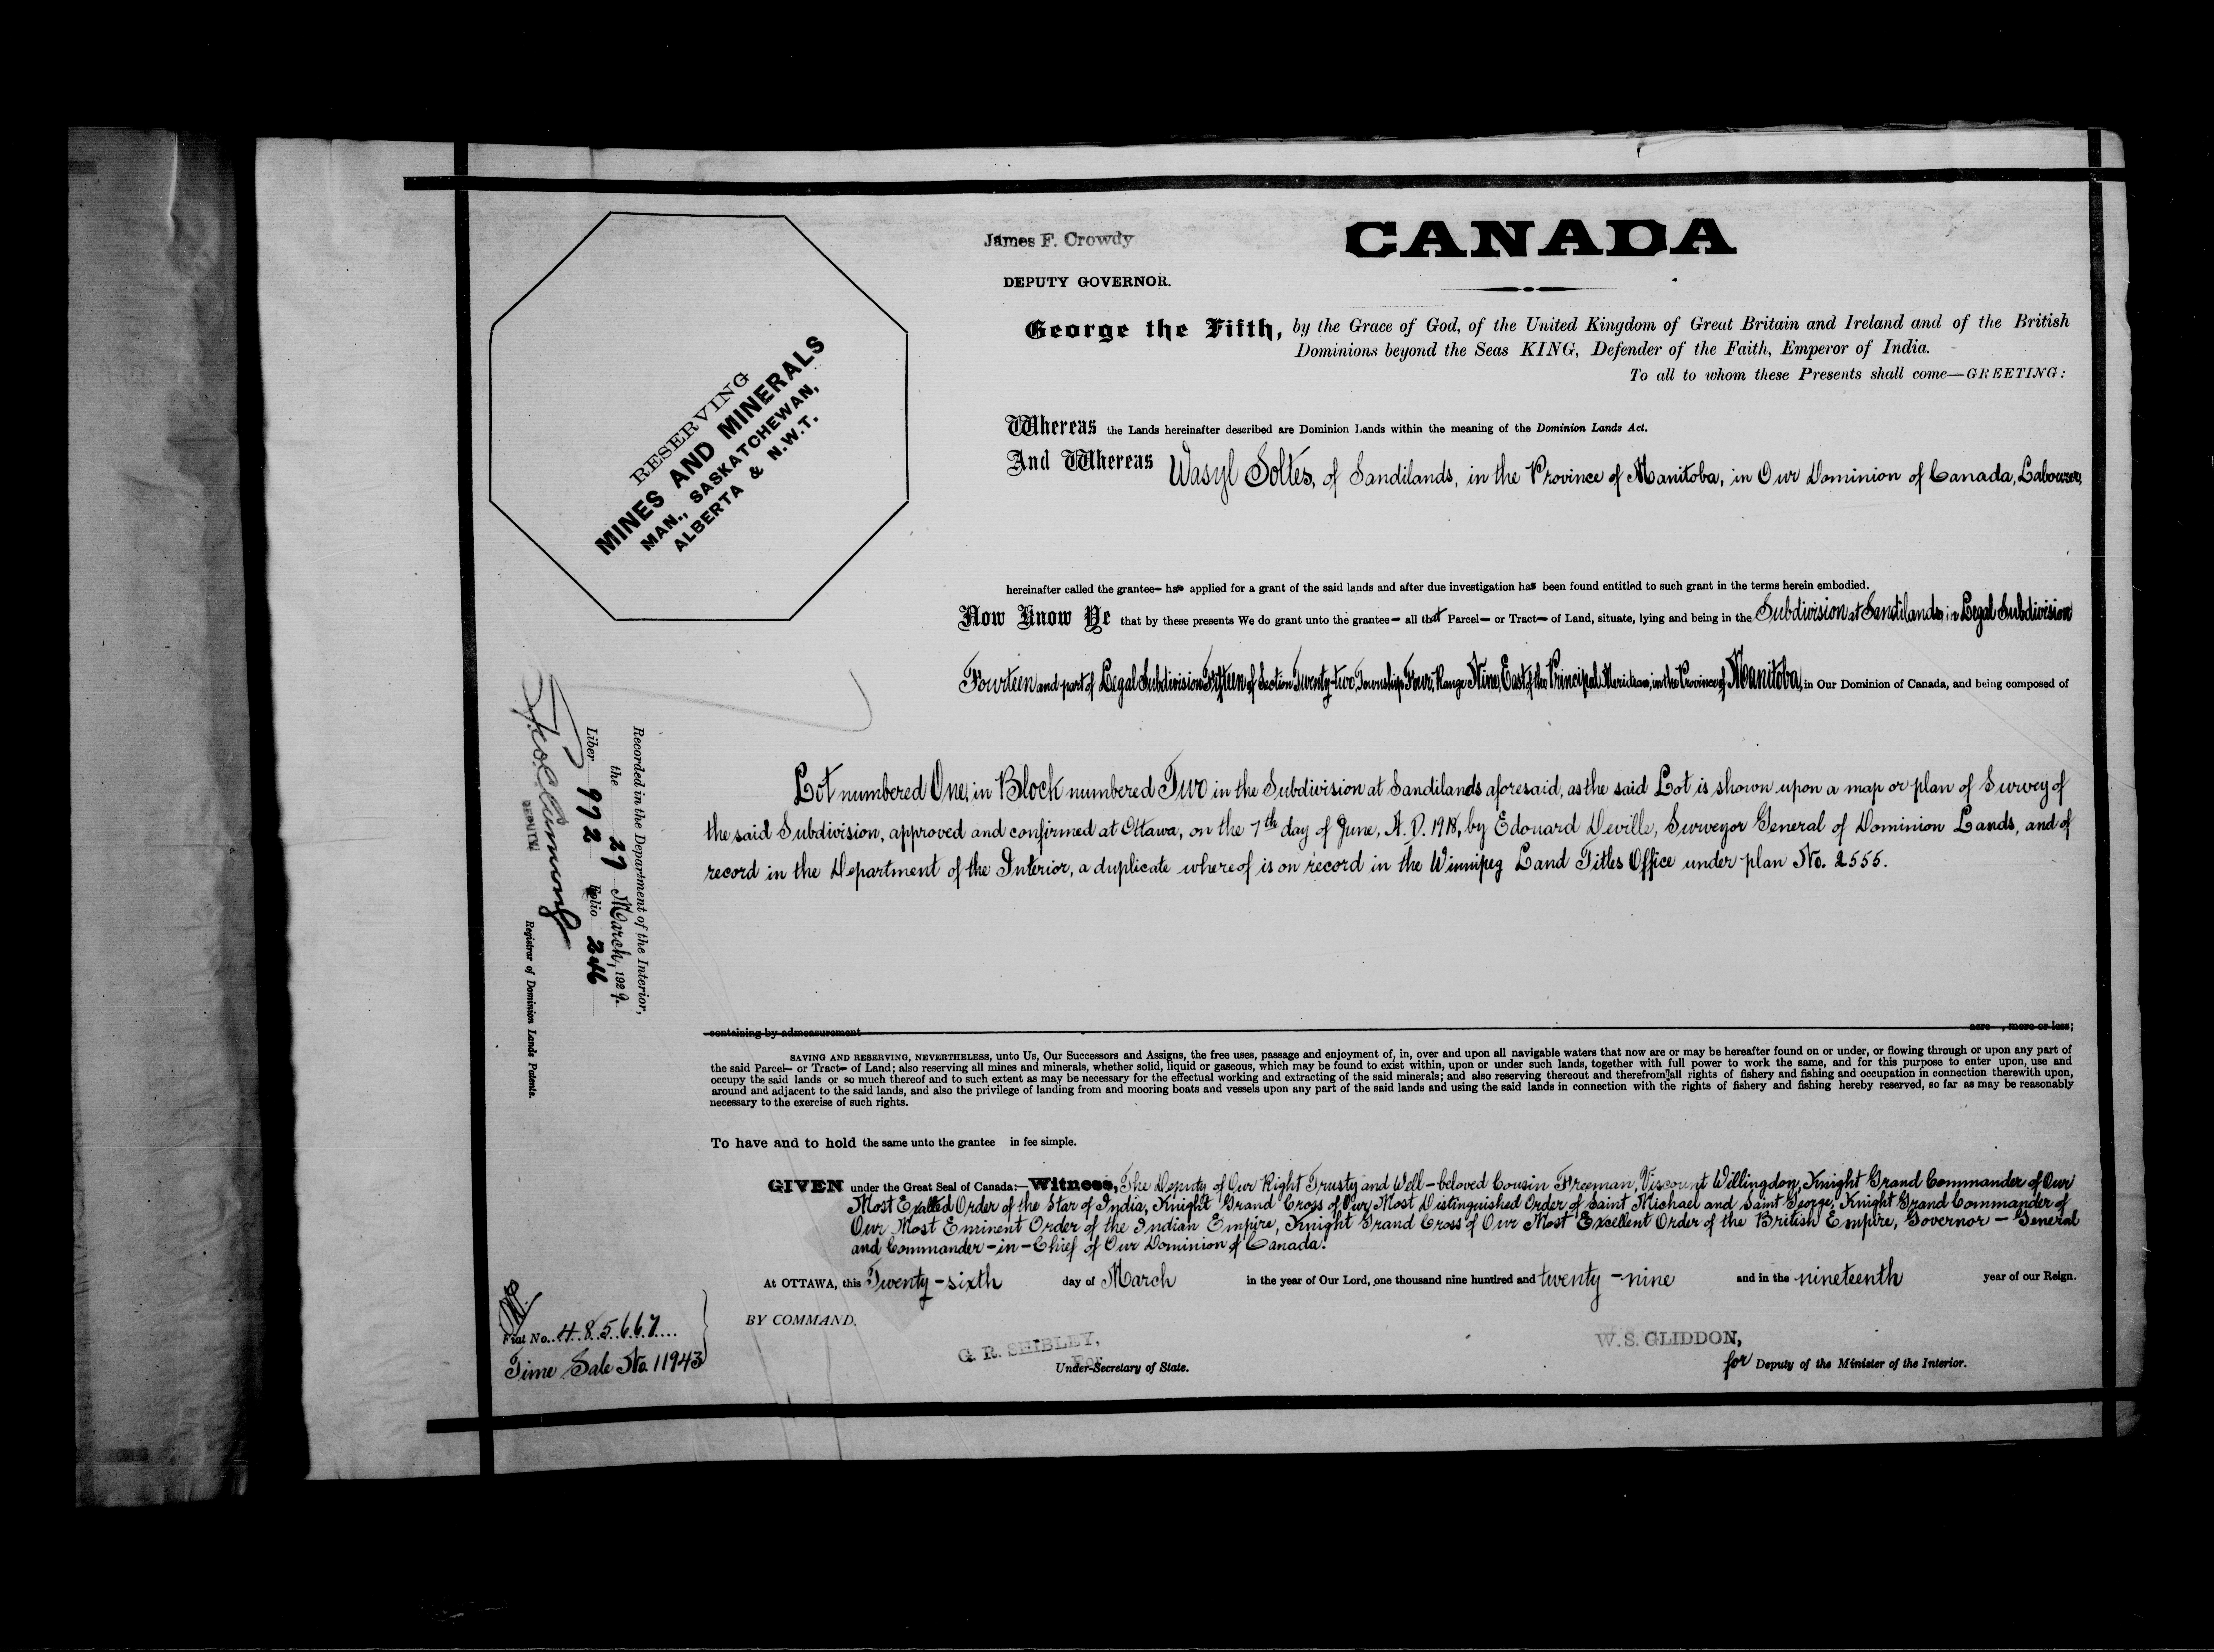 James F. Crowdy
DEPUTY GOVERNOR.
CANADA
George the Fifth, by the Grace of God, of the United Kingdom of Great Britain and Ireland and of the British
Dominions beyond the Seas KING, Defender of the Faith, Emperor of India.
To all to whom these Presents shall come—GREETING:
RESERVING
MINES AND MINERALS
MAN., SASKATCHEWAN,
ALBERTA & N.W.T.
Whereas the Lands hereinafter described are Dominion Lands within the meaning of the Dominion Lands Act.
And Whereas Wasyl Soltes, of Sandilands, in the Province of Manitoba, in Our Dominion of Canada, Labourer,
hereinafter called the grantee— has applied for a grant of the said lands and after due investigation has been found entitled to such grant in the terms herein embodied.
Now Know Ye that by these presents We do grant unto the grantee— all that Parcel— or Tract— of Land, situate, lying and being in the Subdivision at Sandilands, in Legal Subdivision
Fourteen and part of Legal Subdivision Fifteen of Section Twenty-two, Township Four, Range Nine, East of the Principal Meridian, in the Province of Manitoba, in Our Dominion of Canada, and being composed of
Lot numbered One, in Block numbered Two in the Subdivision at Sandilands aforesaid, as the said Lot is shown upon a map or plan of Survey of
the said Subdivision, approved and confirmed at Ottawa, on the 7th day of June, A. D. 1918, by Edouard Deville, Surveyor General of Dominion Lands, and of
record in the Department of the Interior, a duplicate whereof is on record in the Winnipeg Land Titles Office under plan No. 2555.
Recorded in the Department of the Interior,
the 27 March, 1929.
Liber 992 Folio 246
DEPUTY
Registrar of Dominion Lands Patents.
containing by admeasurement acre , more or less;
SAVING AND RESERVING, NEVERTHELESS, unto Us, Our Successors and Assigns, the free uses, passage and enjoyment of, in, over and upon all navigable waters that now are or may be hereafter found on or under, or flowing through or upon any part of
the said Parcel— or Tract— of Land; also reserving all mines and minerals, whether solid, liquid or gaseous, which may be found to exist within, upon or under such lands, together with full power to work the same, and for this purpose to enter upon, use and
occupy the said lands or so much thereof and to such extent as may be necessary for the effectual working and extracting of the said minerals; and also reserving thereout and therefrom all rights of fishery and fishing and occupation in connection therewith upon,
around and adjacent to the said lands, and also the privilege of landing from and mooring boats and vessels upon any part of the said lands and using the said lands in connection with the rights of fishery and fishing hereby reserved, so far as may be reasonably
necessary to the exercise of such rights.
To have and to hold the same unto the grantee in fee simple.
GIVEN under the Great Seal of Canada:—Witness, The Deputy of Our Right Trusty and Well-beloved Cousin Freeman, Viscount Willingdon, Knight Grand Commander of Our
Most Exalted Order of the Star of India, Knight Grand Cross of Our Most Distinguished Order of Saint Michael and Saint George, Knight Grand Commander of
Our Most Eminent Order of the Indian Empire, Knight Grand Cross of Our Most Excellent Order of the British Empire, Governor-General
and Commander-in-Chief of Our Dominion of Canada.
At OTTAWA, this Twenty-sixth day of March in the year of Our Lord, one thousand nine hundred and twenty-nine and in the nineteenth year of our Reign.
BY COMMAND,
Fiat No. 485667
Time Sale No. 11943
G. R. SHIBLEY,
For
Under-Secretary of State.
W. S. GLIDDON,
for Deputy of the Minister of the Interior.